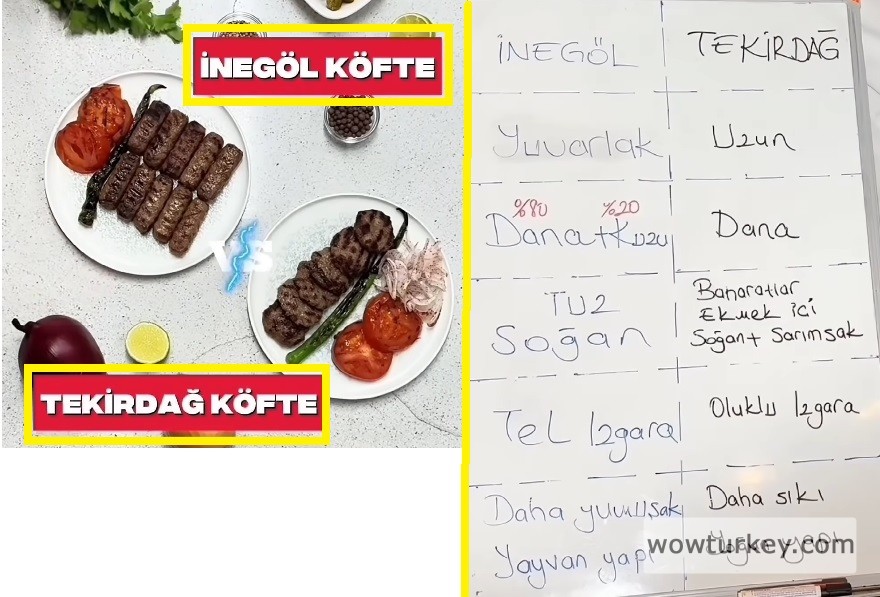 İNEGÖL KÖFTE
VS
TEKİRDAĞ KÖFTE
İNEGÖL
TEKİRDAĞ
Yuvarlak
Uzun
%80 %20
Dana+Kuzu
Dana
TUZ
Soğan
Baharatlar
Ekmek içi
Soğan+ Sarımsak
Tel Izgara
Oluklu Izgara
Daha yumuşak
Yayvan yapı
Daha sıkı
yapı
wowturkey.com